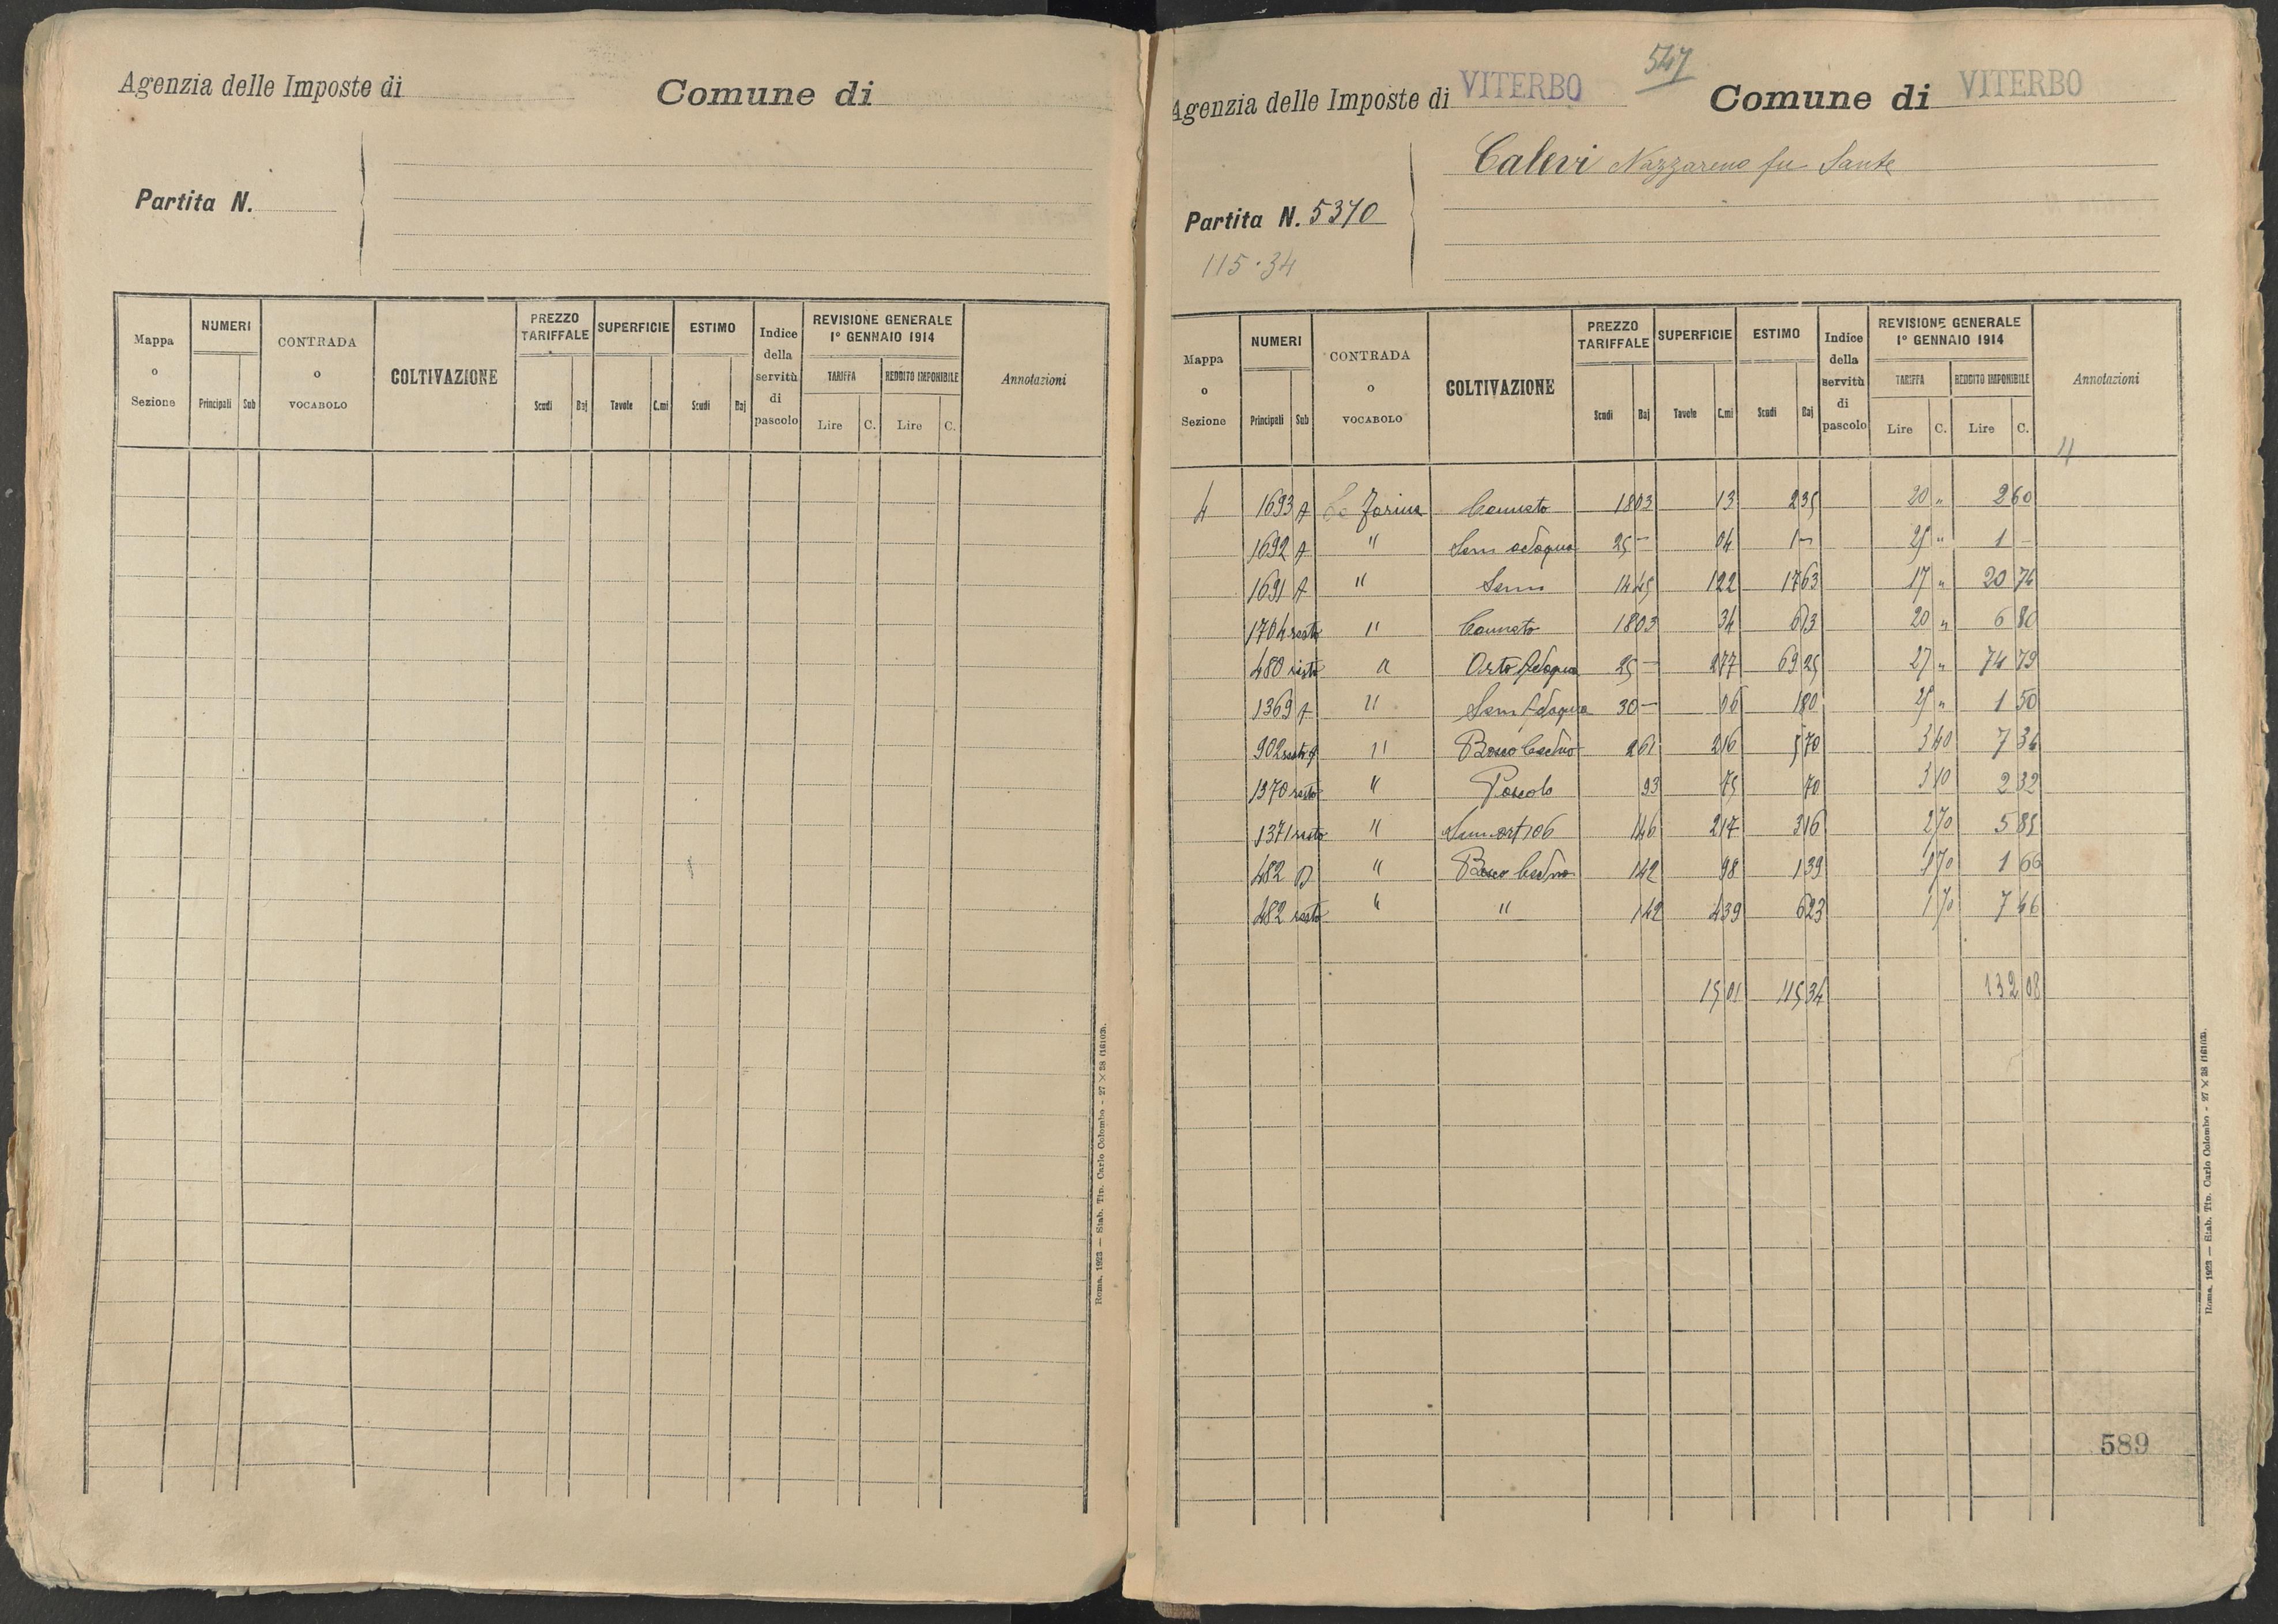 Agenzia delle Imposte di
Comune di
Partita N.
Mappa o Sezione
NUMERI
Principali Sub
CONTRADA o VOCABOLO
COLTIVAZIONE
PREZZO TARIFFALE
Scudi Baj
SUPERFICIE
Tavole C.mi
ESTIMO
Scudi Baj
Indice della servitù di pascolo
REVISIONE GENERALE 1° GENNAIO 1914
TARIFFA
Lire C.
REDDITO IMPONIBILE
Lire C.
Annotazioni
Roma, 1923 — Stab. Tip. Carlo Colombo - 27 × 38 (16103).
547
Agenzia delle Imposte di VITERBO
Comune di VITERBO
Calevi Nazzareno fu Sante
Partita N. 5370
115.34
Mappa o Sezione
NUMERI
Principali Sub
CONTRADA o VOCABOLO
COLTIVAZIONE
PREZZO TARIFFALE
Scudi Baj
SUPERFICIE
Tavole C.mi
ESTIMO
Scudi Baj
Indice della servitù di pascolo
REVISIONE GENERALE 1° GENNAIO 1914
TARIFFA
Lire C.
REDDITO IMPONIBILE
Lire C.
Annotazioni
4 1693 A La Farina Canneto 18 03 13 2 35 20 " 2 60
1692 A " Sem adaqua 25 — 04 1 — 25 " 1 —
1691 A " Sem 14 45 1 22 17 63 17 " 20 74
1704 resto " Canneto 18 03 34 6 13 20 " 6 80
480 resto " Orto Adaqua 25 — 2 77 69 25 27 " 74 79
1369 A " Sem Adaqua 30 — 06 1 80 25 " 1 50
902 resto " Bosco Ceduo 2 61 2 16 5 70 3 40 7 34
1370 resto " Pascolo 93 75 70 3 10 2 32
1371 resto " 1 46 2 17 3 16 2 70 5 85
482 D " Bosco Ceduo 1 42 98 1 39 1 70 1 66
482 resto " " 1 42 4 39 6 23 1 70 7 46
15 01 115 34 132 08
589
Roma, 1923 — Stab. Tip. Carlo Colombo - 27 × 38 (16103).